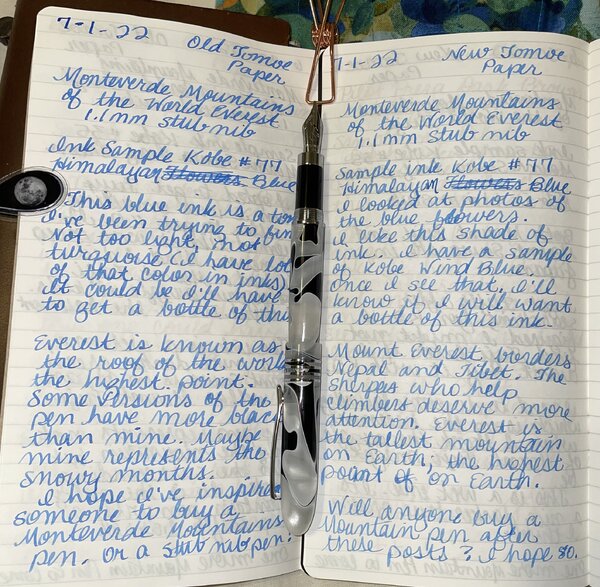 7-1-22
Old Tomoe
Paper
Monteverde Mountains
of the World Everest
1.1mm stub nib
Ink Sample Kobe #77
Himalayan Flowers Blue
This blue ink is a
I've been trying to
Not too light, not
turquoise (I have
of that color in inks)
It could be I'll have
to get a bottle of this
Everest is known as
the roof of the world
the highest point.
Some versions of the
pen have more black
than mine. Maybe
mine represents the
snowy months.
I hope I've inspired
someone to buy a
Monteverde Mountains
pen. Or a stub nib pen.
7-1-22
New Tomoe
Paper
Monteverde Mountains
of the World Everest
1.1mm Stub nib
Sample ink Kobe #77
Himalayan Flowers Blue
I looked at photos of
the blue flowers.
I like this shade of
ink. I have a sample
of Kobe Wind Blue.
Once I see that, I'll
know if I will want
a bottle of this ink.
Mount Everest borders
Nepal and Tibet. The
Sherpas who help
climbers deserve more
attention. Everest is
the tallest mountain
on Earth; the highest
point of on Earth.
Will anyone buy a
Mountain pen after
these posts? I hope so.